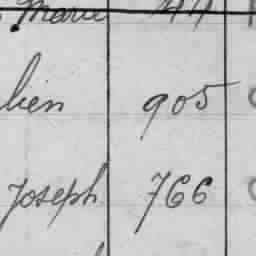 Marie
lien 905
Joseph 766